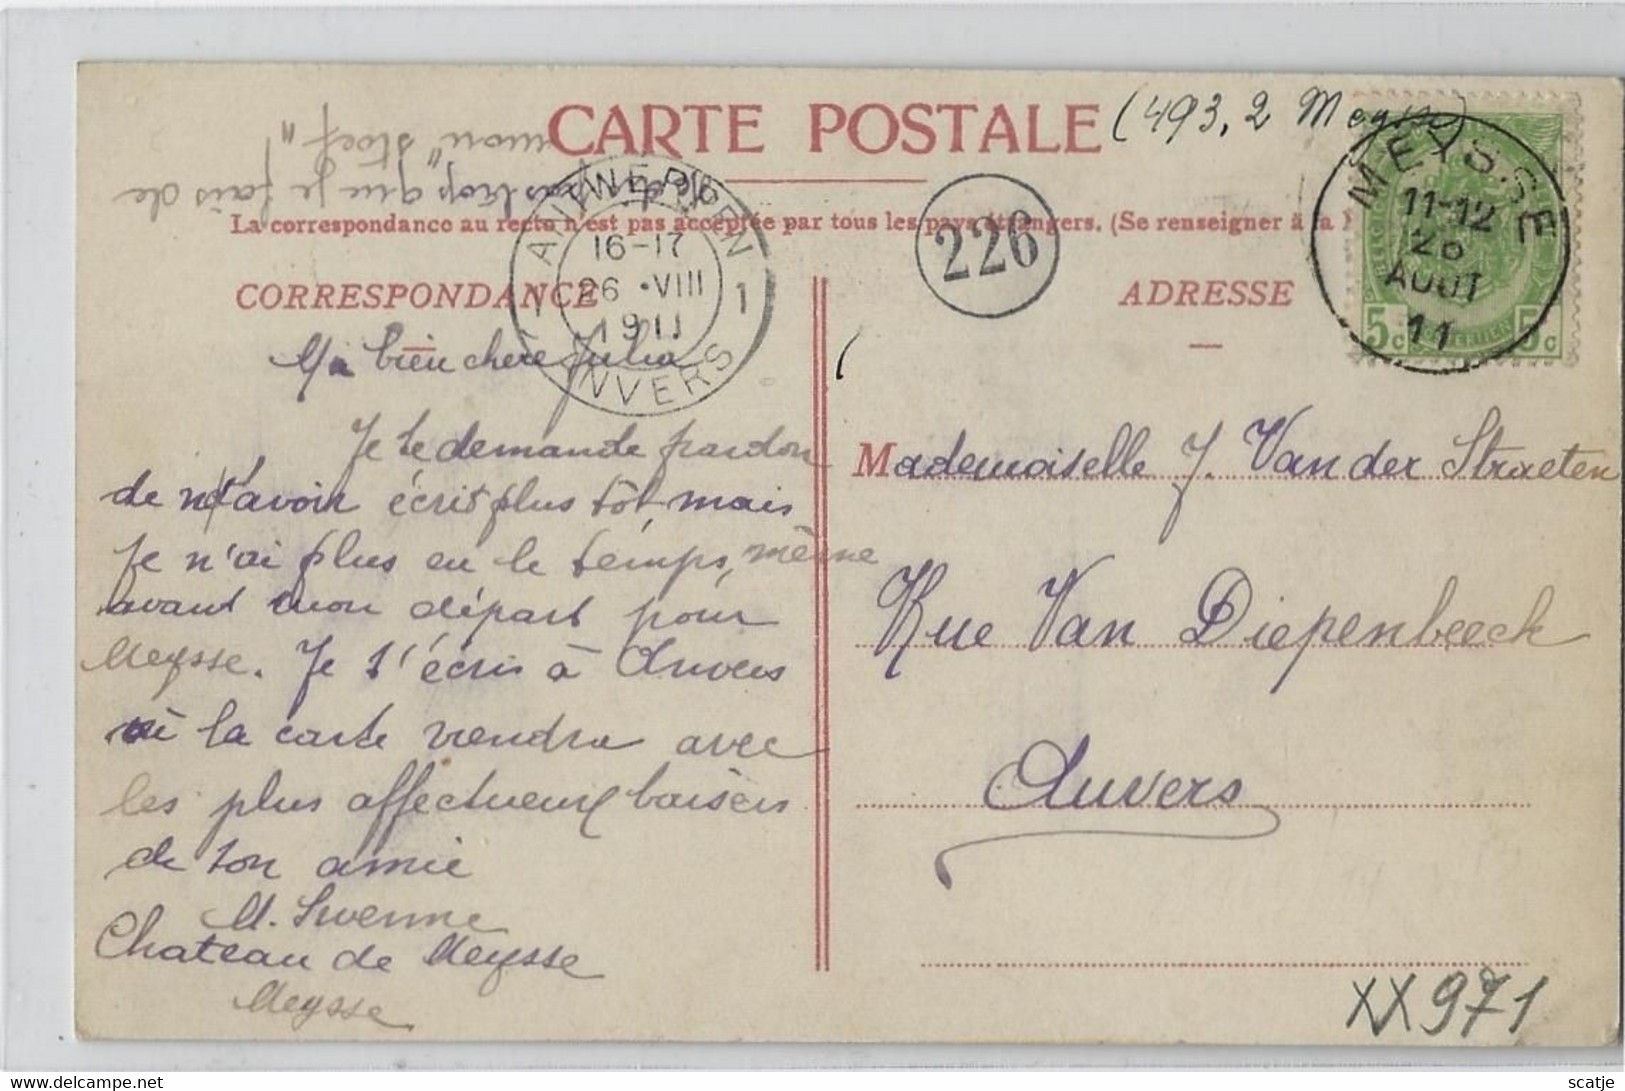 CARTE POSTALE
(493, 2 Meysse)
pas trop que je fais de
mon "stoef"!
La correspondance au recto n'est pas acceptée par tous les pays étrangers. (Se renseigner à la
CORRESPONDANCE
ADRESSE
ANTWERPEN
1 16-17 1
26 • VIII
1911
ANVERS
226
MEYSSE
11-12
26
AOUT
11
5c 5c
Ma bien chère Julia
Je te demande pardon
de n't'avoir écris plus tôt, mais
je n'ai plus eu le temps, même
avant mon départ pour
Meysse. Je t'écris à Anvers
où la carte viendra avec
les plus affectueux baisers
de ton amie
M.
Chateau de Meysse
Meysse
Mademoiselle J. Van der Straeten
Rue Van Diepenbeeck
Anvers
XX971
scatje